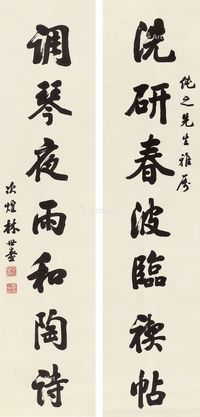 洗研春波臨禊帖
純之先生雅屬
調琴夜雨和陶詩
次煌林世燾